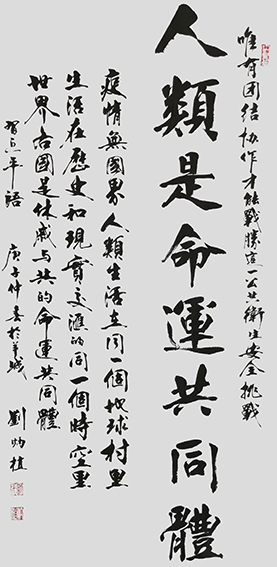 唯有团结协作才能戰勝這一公共衛生安全挑戰
人類是命運共同體
疫情無國界人類生活在同一個地球村里
生活在歷史和現實交滙的同一個時空里
世界各國是休戚与共的命運共同體
習近平語 庚子仲春於羊城 劉炳植